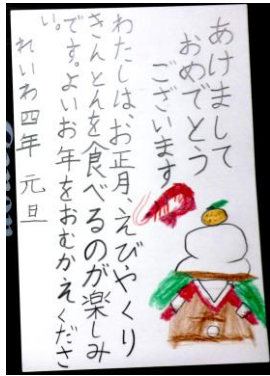 あけまして
おめでとう
ございます
わたしは、お正月、えびやくり
きんとんを食べるのが楽しみ
です。よいお年をおむかえくださ
い。
れいわ四年 元旦